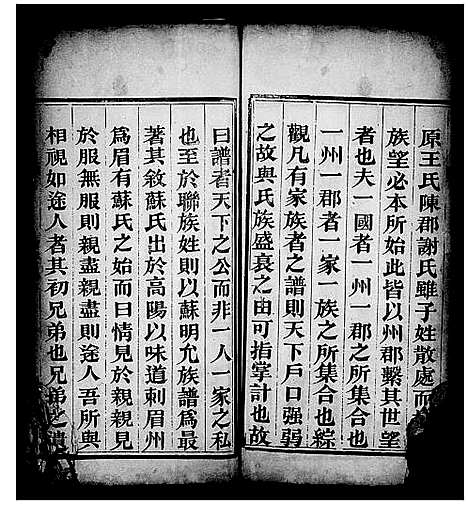 原王氏陳郡謝氏雖子姓散處而
族望必本所始此皆以州郡繫其世望
者也夫一國者一州一郡之所集合也
一州一郡者一家一族之所集合也綜
觀凡有家族者之譜則天下戶口強弱
之故與氏族盛衰之由可指掌計也故
曰譜者天下之公而非一人一家之私
也至於聯族姓則以蘇明允族譜爲最
著其敘蘇氏出於高陽以味道刺眉州
爲眉有蘇氏之始而曰情見於親親見
於服無服則親盡親盡則途人吾所與
相視如途人者其初兄弟也兄弟之